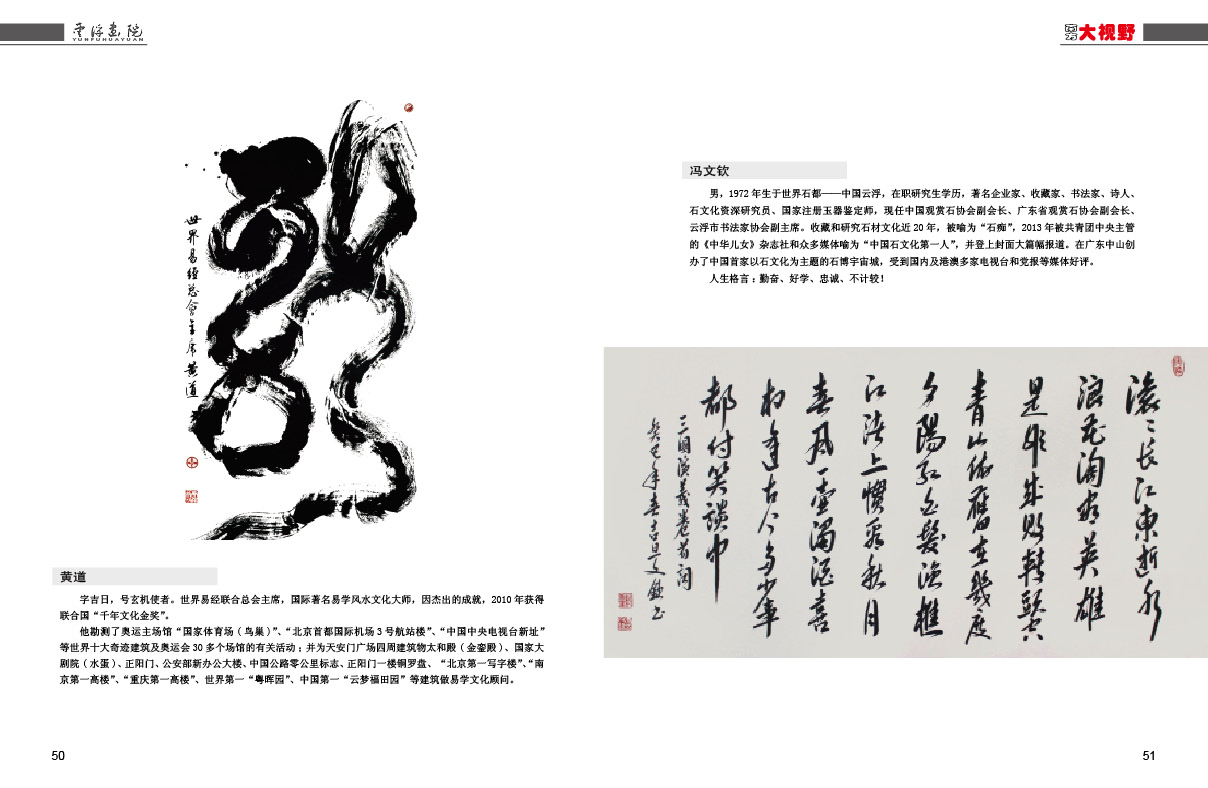 雲浮畫院
YUNFUHUAYUAN
世界易經总會主席黄道
黄道
字吉日，号玄机使者。世界易经联合总会主席，国际著名易学风水文化大师，因杰出的成就，2010 年获得
联合国“千年文化金奖”。
他勘测了奥运主场馆“国家体育场（鸟巢）”、“北京首都国际机场 3 号航站楼”、“中国中央电视台新址”
等世界十大奇迹建筑及奥运会 30 多个场馆的有关活动；并为天安门广场四周建筑物太和殿（金銮殿）、国家大
剧院（水蛋）、正阳门、公安部新办公大楼、中国公路零公里标志、正阳门一楼铜罗盘、“北京第一写字楼”、“南
京第一高楼”、“重庆第一高楼”、世界第一“粤晖园”、中国第一“云梦福田园”等建筑做易学文化顾问。
50
大视野
冯文钦
男，1972 年生于世界石都——中国云浮，在职研究生学历，著名企业家、收藏家、书法家、诗人、
石文化资深研究员、国家注册玉器鉴定师，现任中国观赏石协会副会长、广东省观赏石协会副会长、
云浮市书法家协会副主席。收藏和研究石材文化近 20 年，被喻为“石痴”，2013 年被共青团中央主管
的《中华儿女》杂志社和众多媒体喻为“中国石文化第一人”，并登上封面大篇幅报道。在广东中山创
办了中国首家以石文化为主题的石博宇宙城，受到国内及港澳多家电视台和党报等媒体好评。
人生格言：勤奋、好学、忠诚、不计较！
滚〻长江東逝水
浪花淘盡英雄
是非成敗轉頭空
青山依舊在幾度
夕陽紅白髮漁樵
江渚上慣看秋月
春風一壶濁酒喜
相逢古今多少事
都付笑談中
三國演義卷首詞
癸巳年春吉旦文欽書
51